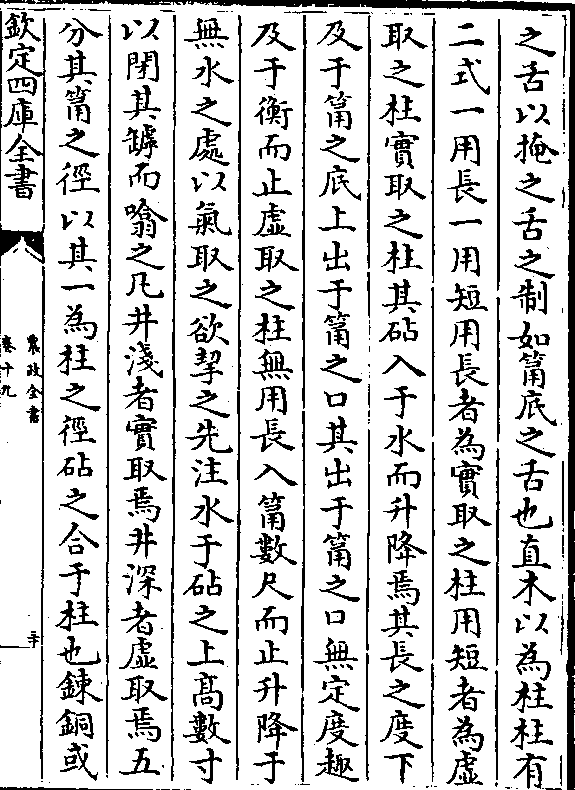 之舌以掩之舌之制如筩底之舌也直木以為柱柱有
二式一用長一用短用長者為實取之柱用短者為虛
取之柱實取之柱其砧入于水而升降焉其長之度下
及于筩之底上出于筩之口其出于筩之口無定度趣
及于衡而止虛取之柱無用長入筩數尺而止升降于
無水之處以氣取之欲挈之先注水于砧之上髙數寸
以閉其罅而噏之凡井淺者實取焉井深者虛取焉五
分其筩之徑以其一為柱之徑砧之合于柱也鍊銅或
欽定四庫全書
農政全書
卷十九